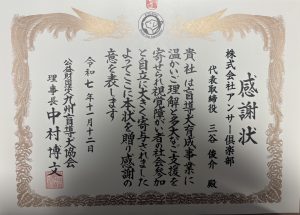 感謝状
株式会社アンサー倶楽部
代表取締役 三谷俊介 殿
貴社は盲導犬育成事業に
温かいご理解と多大なご支援を
寄せられ視覚障がい者の社会参加
と自立に大きく寄与されました
よってここに本状を贈り感謝の
意を表します
令和七年十一月十二日
公益財団法人九州盲導犬協会
理事長 中村博文